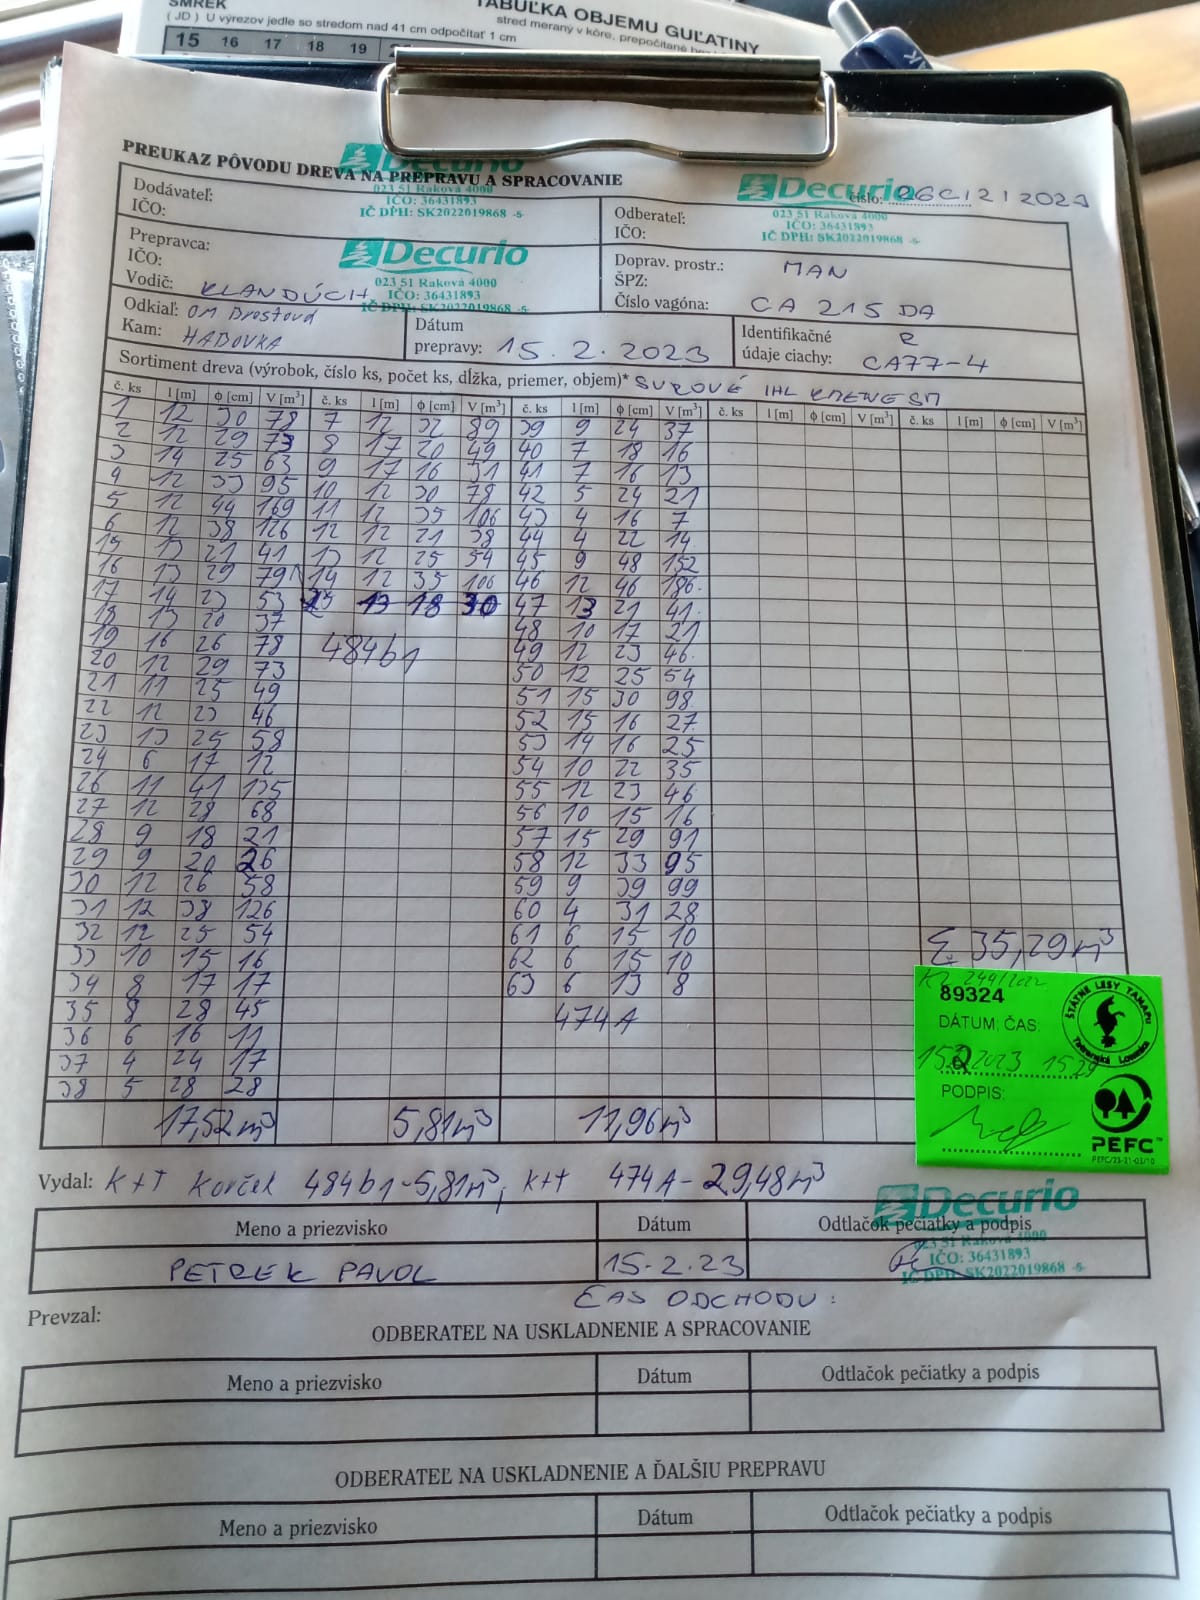 SMREK
TABUĽKA OBJEMU GUĽATINY
( JD ) U výrezov jedle so stredom nad 41 cm odpočítať 1 cm
stred meraný v kôre, prepočítané
15 16 17 18 19
PREUKAZ PÔVODU DREVA NA PREPRAVU A SPRACOVANIE
Decurio
023 51 Raková 4000
IČO: 36431893
IČ DPH: SK2022019868 -5-
Decurio
023 51 Raková 4000
IČO: 36431893
IČ DPH: SK2022019868 -5-
číslo: 2023
Dodávateľ:
IČO:
Odberateľ:
IČO:
Prepravca:
IČO:
Vodič: KLANDÚCH
Decurio
023 51 Raková 4000
IČO: 36431893
IČ DPH: SK2022019868 -5-
Doprav. prostr.: MAN
ŠPZ:
Číslo vagóna: CA 215 DA
Odkiaľ: OM Drostová
Kam: HADOVKA
Dátum
prepravy: 15. 2. 2023
Identifikačné
údaje ciachy: CA77-4
Sortiment dreva (výrobok, číslo ks, počet ks, dĺžka, priemer, objem)* SUROVÉ IHL KMENE SM
č. ks l [m] ϕ [cm] V [m³] č. ks l [m] ϕ [cm] V [m³] č. ks l [m] ϕ [cm] V [m³] č. ks l [m] ϕ [cm] V [m³] č. ks l [m] ϕ [cm] V [m³]
1 12 30 78 7 12 32 89 39 9 24 37
2 12 29 73 8 17 20 49 40 7 18 16
3 14 25 63 9 17 16 31 41 7 16 13
4 12 33 95 10 12 30 78 42 5 24 21
5 12 44 169 11 12 35 106 43 4 16 7
6 12 38 126 12 12 21 38 44 4 22 14
15 13 21 41 13 12 25 54 45 9 48 152
16 13 29 79 14 12 35 106 46 12 46 186
17 14 23 53 25 13 18 30 47 13 21 41
18 13 20 37 48 10 17 21
19 16 26 78 484b1 49 12 23 46
20 12 29 73 50 12 25 54
21 11 25 49 51 15 30 98
22 12 23 46 52 15 16 27
23 13 25 58 53 14 16 25
24 6 17 12 54 10 22 35
26 11 41 135 55 12 23 46
27 12 28 68 56 10 15 16
28 9 18 21 57 15 29 91
29 9 20 26 58 12 33 95
30 12 26 58 59 9 39 99
31 12 38 126 60 4 31 28
32 12 25 54 61 6 15 10
33 10 15 16 62 6 15 10
34 8 17 17 63 6 13 8
35 8 28 45 474A
36 6 16 11
37 4 24 17
38 5 28 28
Σ 35,29m³
17,52m³ 5,81m³ 11,96m³
89324
DÁTUM, ČAS:
15.2.2023 15
PODPIS:
ŠTÁTNE LESY TANAPU
Tatranská Lomnica
PEFC™
PEFC/23-21-03/10
Vydal: K+T Korček 484b1-5,81m³, K+T 474A-29,48m³
Meno a priezvisko Dátum Odtlačok pečiatky a podpis
PETREK PAVOL 15.2.23
Decurio
023 51 Raková 4000
IČO: 36431893
IČ DPH: SK2022019868 -5-
ČAS ODCHODU:
Prevzal:
ODBERATEĽ NA USKLADNENIE A SPRACOVANIE
Meno a priezvisko Dátum Odtlačok pečiatky a podpis
ODBERATEĽ NA USKLADNENIE A ĎALŠIU PREPRAVU
Meno a priezvisko Dátum Odtlačok pečiatky a podpis